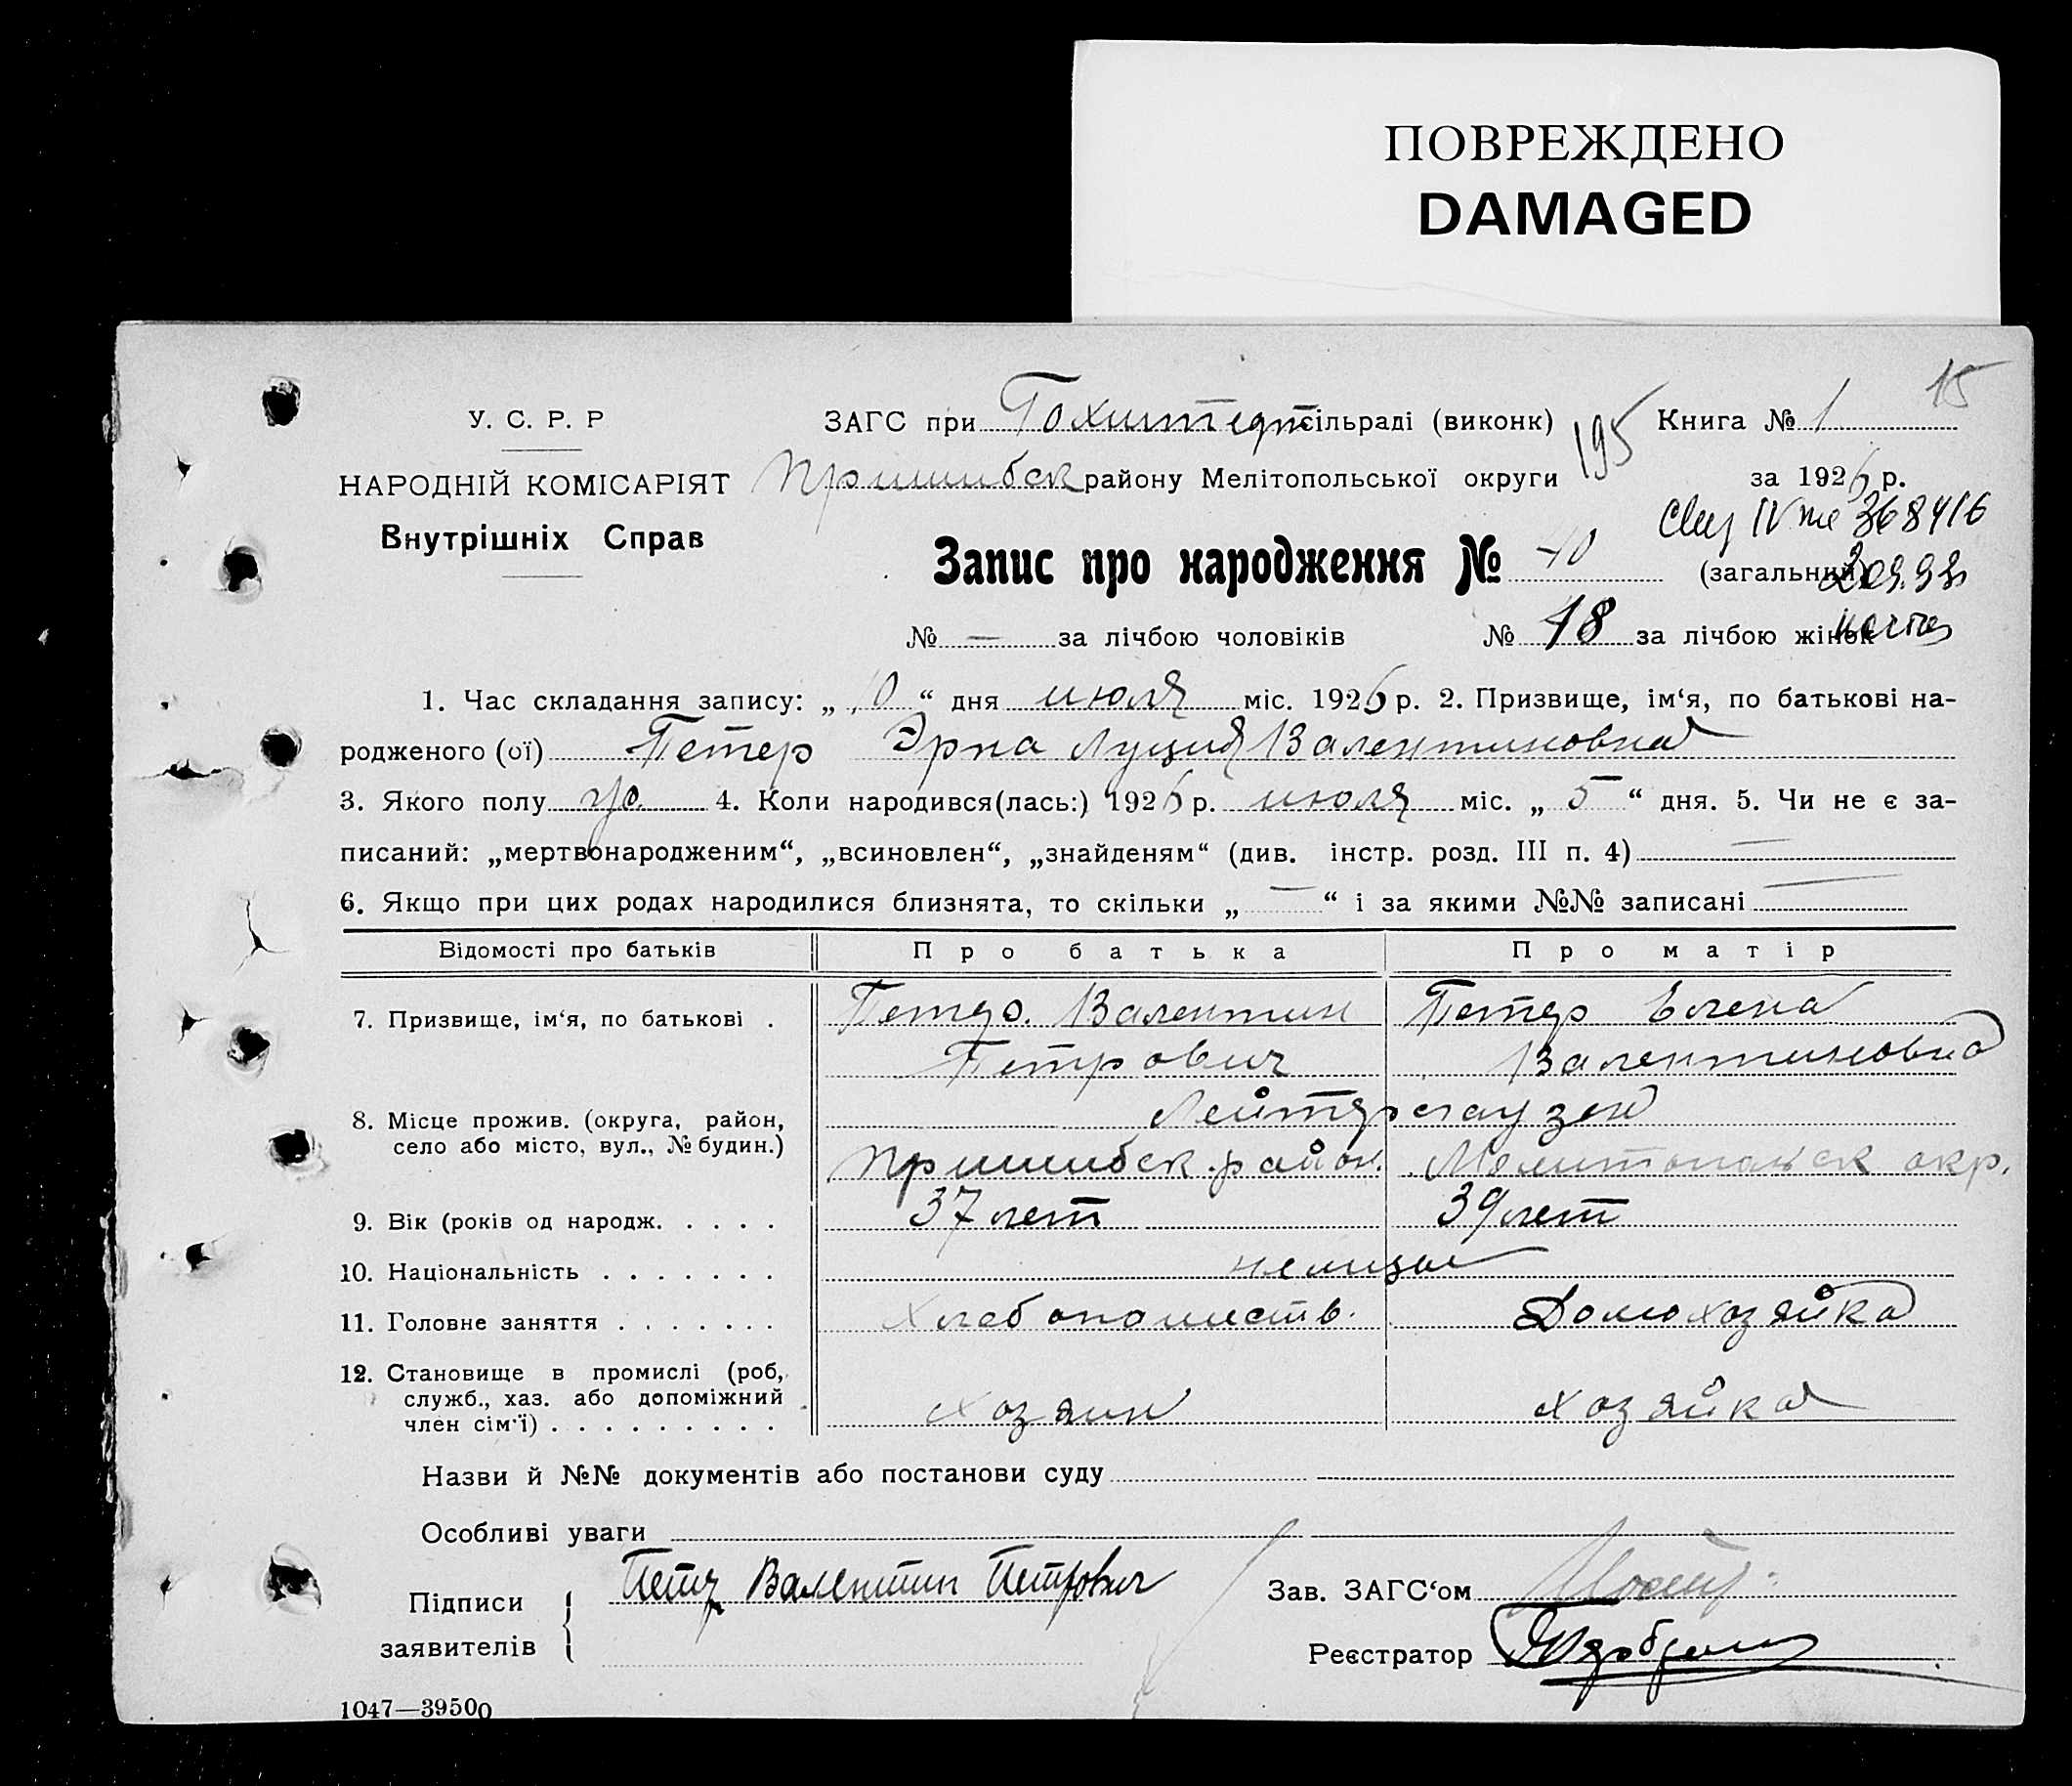 ПОВРЕЖДЕНО
DAMAGED
15
У. С. Р. Р
ЗАГС при Гохштедт сільраді (виконк)
195
Книга № 1
НАРОДНІЙ КОМІСАРІЯТ
Пришибск району Мелітопольської округи
за 1926 р.
Внутрішніх Справ
IV 368416
Запис про народження № 40 (загальний)
№ — за лічбою чоловіків № 18 за лічбою жінок
1. Час складання запису: „ 10 “ дня июля міс. 1926 р. 2. Призвище, ім‘я, по батькові на-
родженого (ої) Петер Эрна Луция Валентиновна
3. Якого полу 4. Коли народився(лась:) 1926 р. июля міс. „ 5 “ дня. 5. Чи не є за-
писаний: „мертвонародженим“, „всиновлен“, „знайденям“ (див. інстр. розд. III п. 4) —
6. Якщо при цих родах народилися близнята, то скільки „ — “ і за якими №№ записані —
Відомості про батьків Про батька Про матір
7. Призвище, ім‘я, по батькові . Петер Валентин Петер Елена
Петрович Валентиновна
8. Місце прожив. (округа, район, село або місто, вул., № будин.) Лейтерсгаузен
Пришибск. район. Мелитопольск окр.
9. Вік (років од народж. . . . . 37 лет 39 лет
10. Національність . . . . . . . немцы
11. Головне заняття . . . . . . . Хлебопашеств. Домохозяйка
12. Становище в промислі (роб,
служб., хаз. або допоміжний
член сім‘ї) . . . . . . . . . хозяин хозяйка
Назви й №№ документів або постанови суду
Особливі уваги
Підписи заявителів Петер Валентин Петрович
Зав. ЗАГС‘ом
Реєстратор
1047—39500